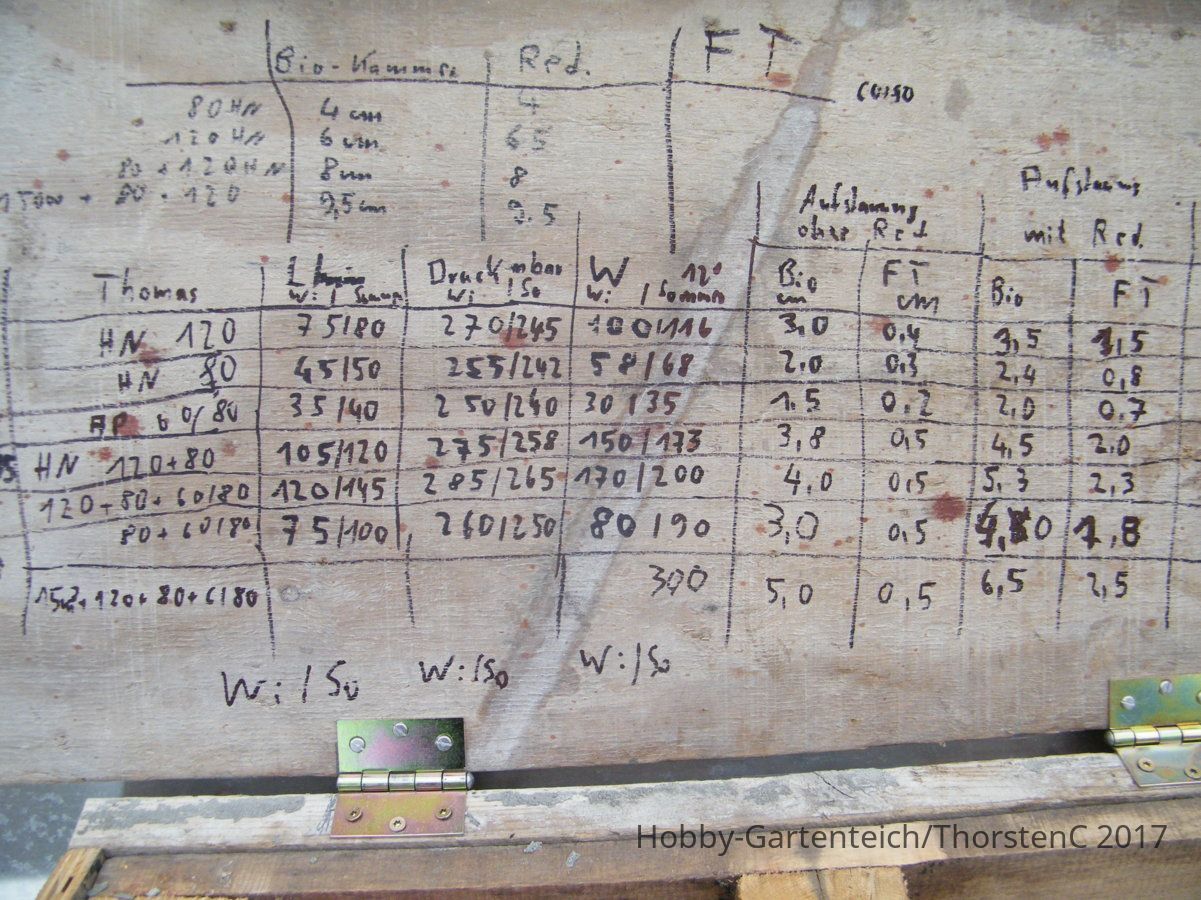 Bio-Kammer Red. FT
80 HN 4 cm 4
120 HN 6 cm 6,5
80 + 120 HN 8 cm 8
80 + 120 9,5 cm 9.5
Aufstauung Aufstauung
ohne Red. mit Red.
Thomas L Druck mbar W 12° Bio FT Bio FT
Wi / Somm Wi / So Wi / Somm cm cm
HN 120 75/80 270/245 100/116 3,0 0,4 3,5 1,5
HN 80 45/50 255/242 58/68 2,0 0,3 2,4 0,8
AP 60/80 35/40 250/240 30/35 1,5 0,2 2,0 0,7
HN 120+80 105/120 275/258 150/173 3,8 0,5 4,5 2.0
120+80+60/80 120/145 285/265 170/200 4,0 0,5 5,3 2,3
80+60/80 75/100 260/250 80/90 3,0 0,5 1,8
300 5,0 0,5 6,5 2,5
Wi / So Wi / So Wi / So
Hobby-Gartenteich/ThorstenC 2017